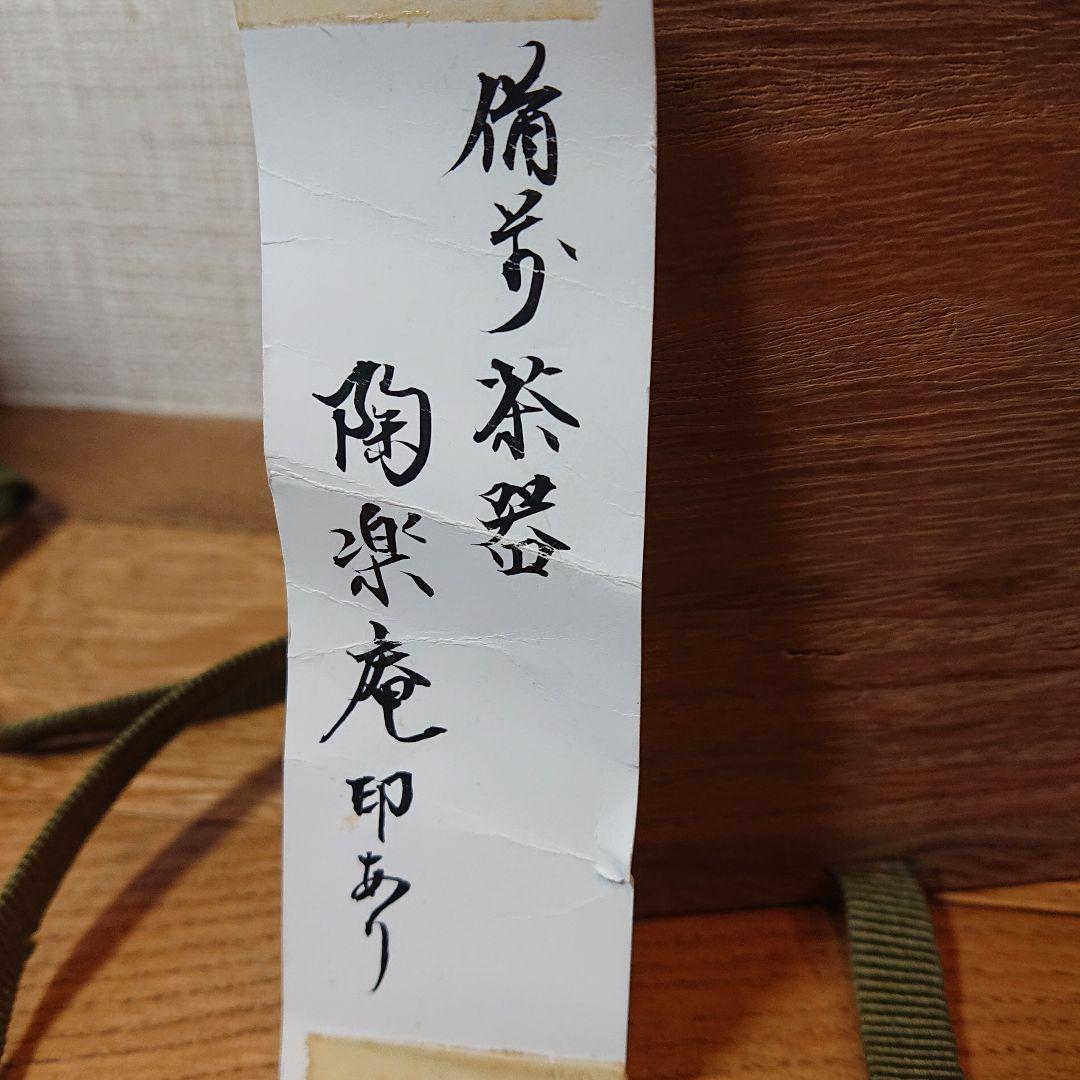 備前茶器
陶楽庵印あり